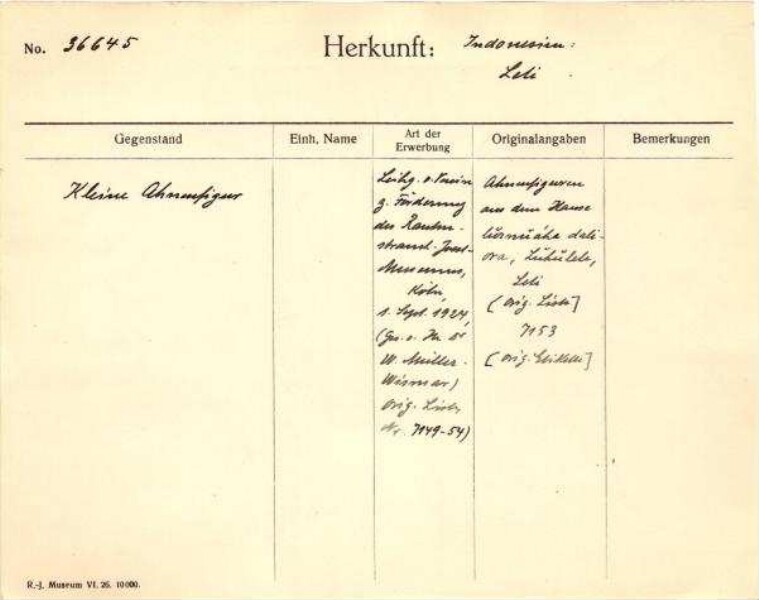 No. 36645 Herkunft: Indonesien:
Leti
Gegenstand Einh. Name Art der Erwerbung Originalangaben Bemerkungen
Kleine Ahnenfigur
Leihg. v. Verein
z. Förderung
des Rautenstrauch-Joest-
Museums,
Köln,
1. Sept. 1924,
(Ges. v. Hr. Dr
W. Müller-
Wismar)
Orig. Liste
Nr. 7149-54)
Ahnenfiguren
aus dem Hause
dali-
ora, Lühülele,
Leti
(Orig. Liste]
7153
[Orig. Etikette]
R.-J. Museum VI. 26. 10000.